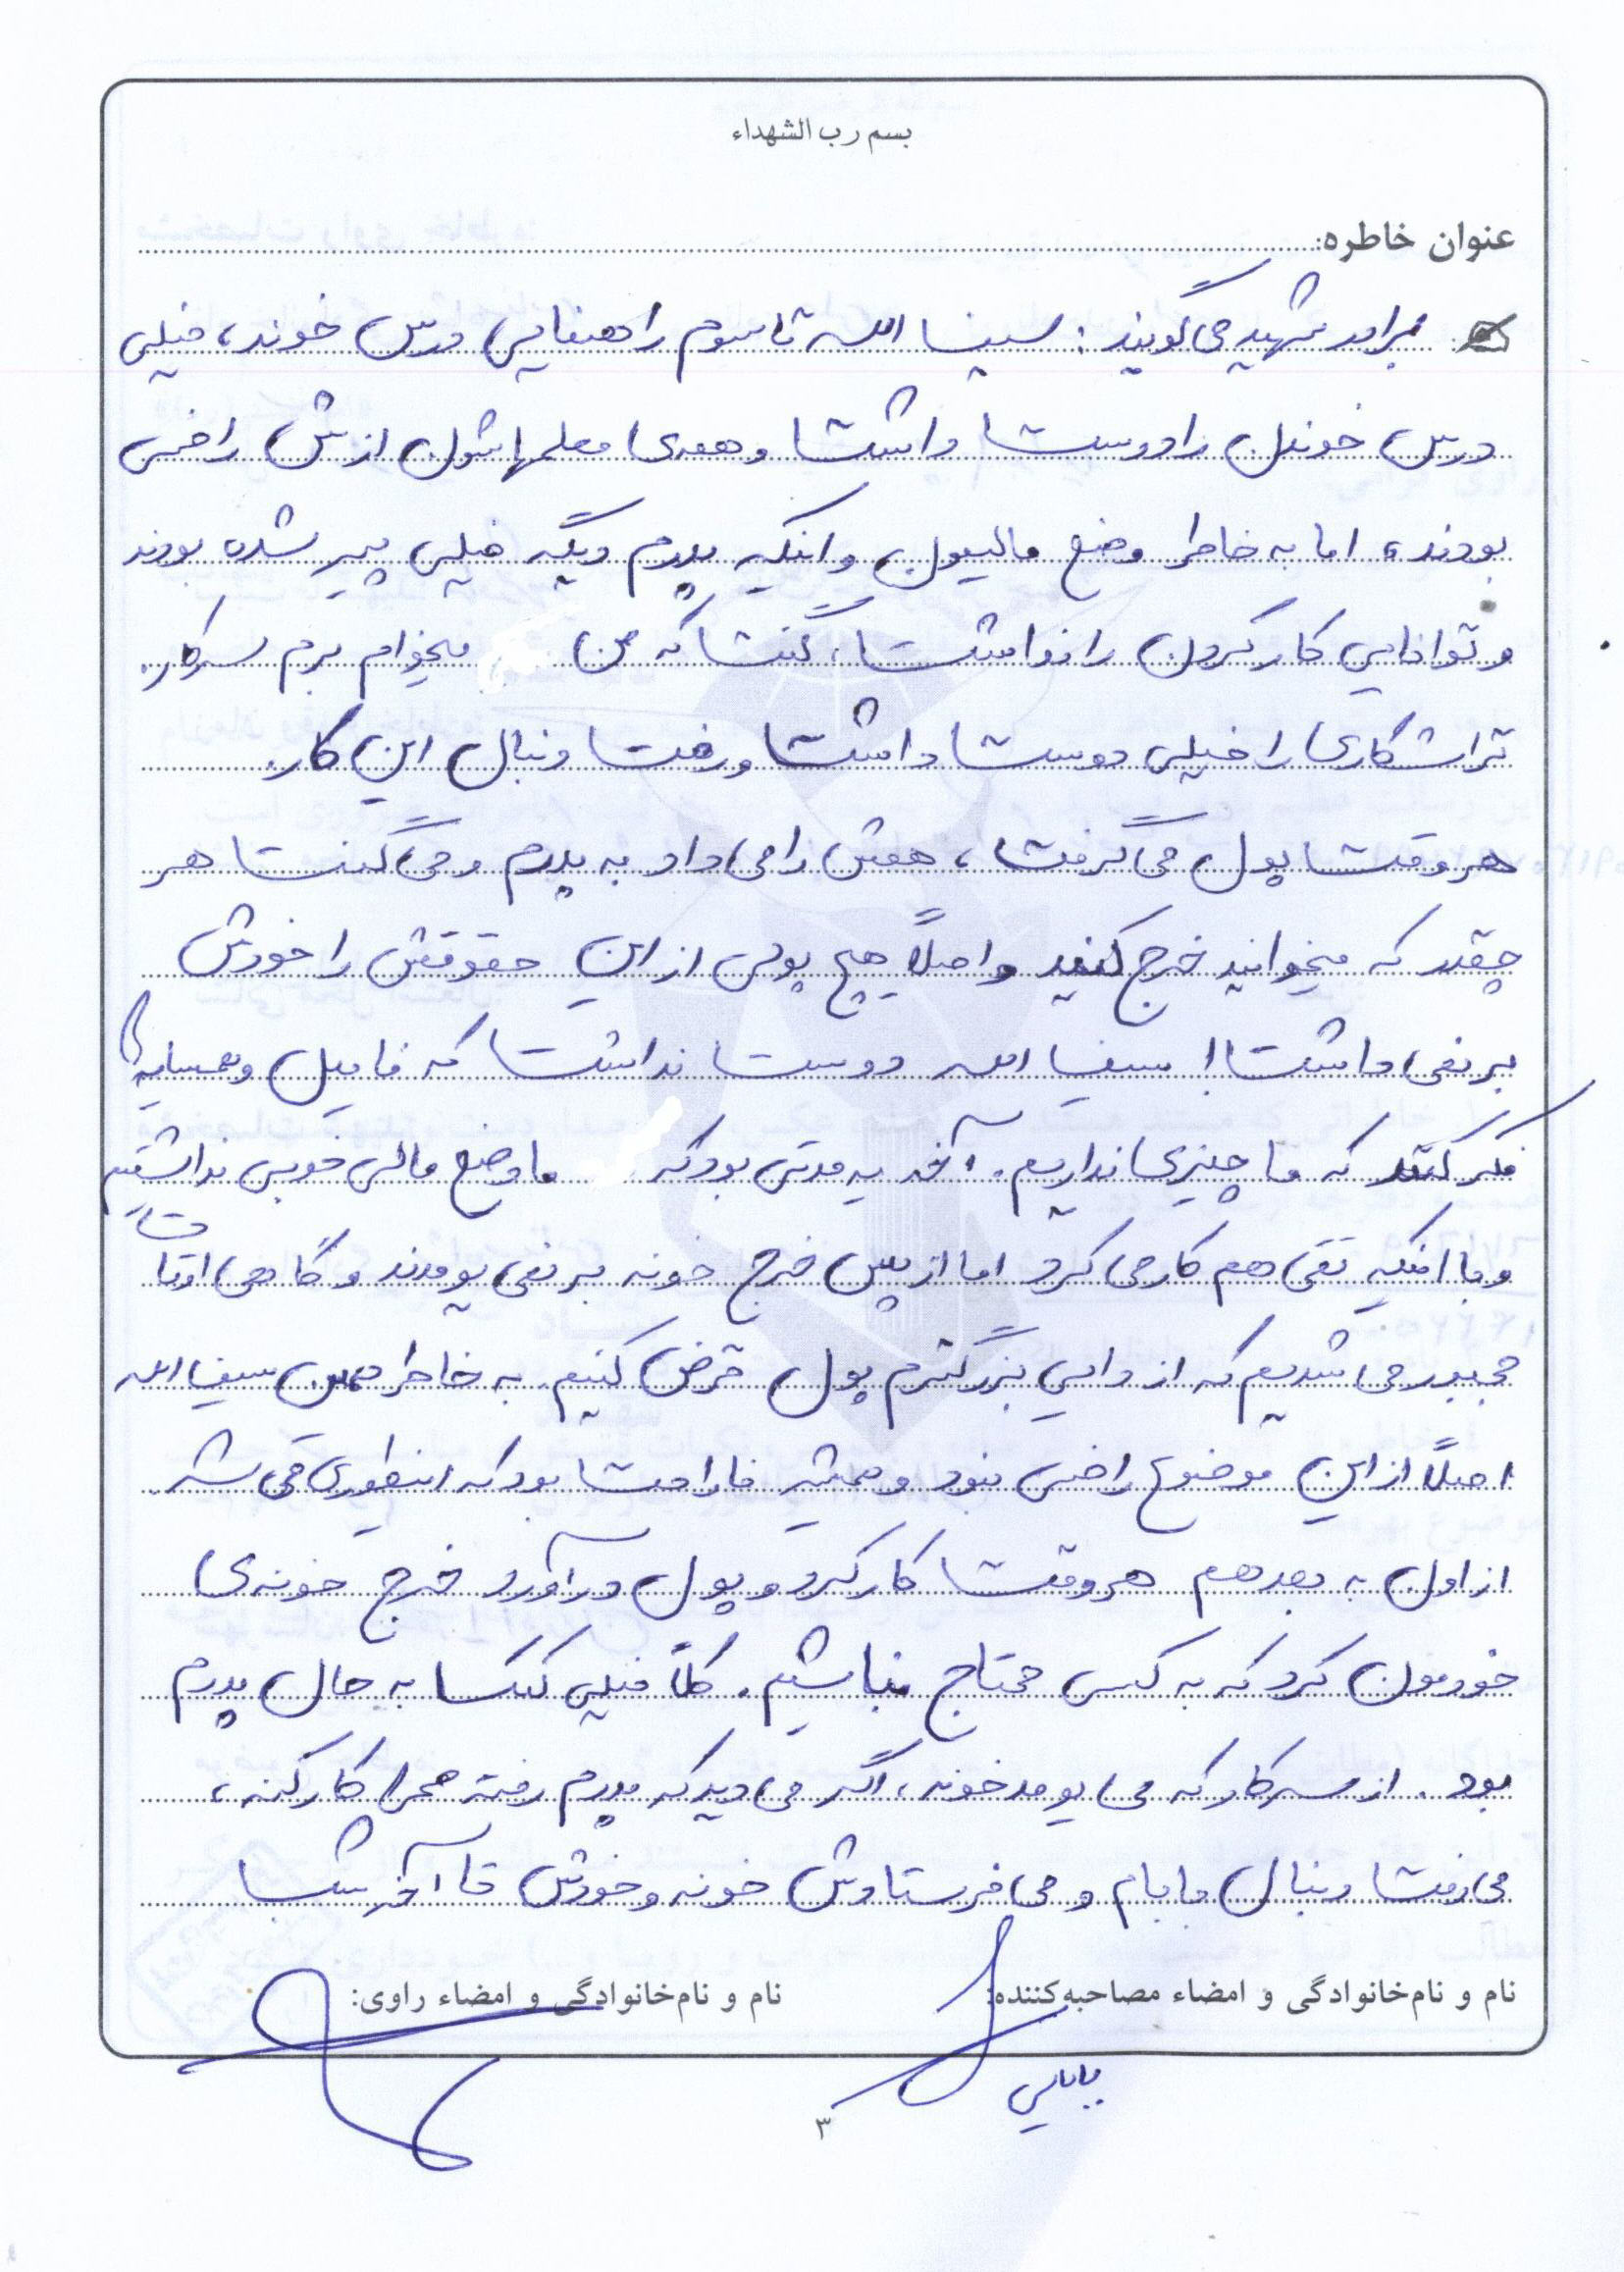 بسم رب الشهداء
عنوان خاطره:
برادر شهید می گویند: سیف الله تا سوم راهنمایی درس خوند، خیلی
درس خوندن را دوست داشت و همه‌ی معلمهاشون ازش راضی
بودند، اما به خاطر وضع مالیمون و اینکه پدرم دیگه خیلی پیر شده بودند
و توانایی کار کردن را نداشت، گفت که من میخوام برم سرکار.
تراشکاری را خیلی دوست داشت و رفت دنبال این کار.
هر وقت پول می گرفت، همش را می داد به پدرم و می گفت هر
چقدر که میخوانید خرج کنید و اصلاً هیچ پولی از این حقوقش را خودش
بر نمی داشت! سیف الله دوست نداشت که فامیل و همسایه‌ها
فکر کنند که ما چیزی نداریم. آخه یه مدتی بود که ما وضع مالی خوبی نداشتیم
و با اینکه تقی هم کار می کرد اما از پس خرج خونه بر نمی یومدند و گاهی اوقات
مجبور می شدیم که از دایی بزرگترم پول قرض کنیم. به خاطر همین سیف الله
اصلاً از این موضوع راضی نبود و همیشه ناراحت بود که اینطوری می شد.
از اون به بعد هم هر وقت کار کرد و پول در آورد خرج خونه‌ی
خودمون کرد که به کسی محتاج نباشیم. کلاً خیلی کمک به حال پدرم
بود. از سرکار که می یومد خونه، اگر می دید که پدرم رفته صحرا کار کنه،
می رفت دنبال بابام و می فرستادش خونه و خودش تا آخر شب
نام و نام‌خانوادگی و امضاء مصاحبه‌کننده:
نام و نام‌خانوادگی و امضاء راوی:
بابایی
۳